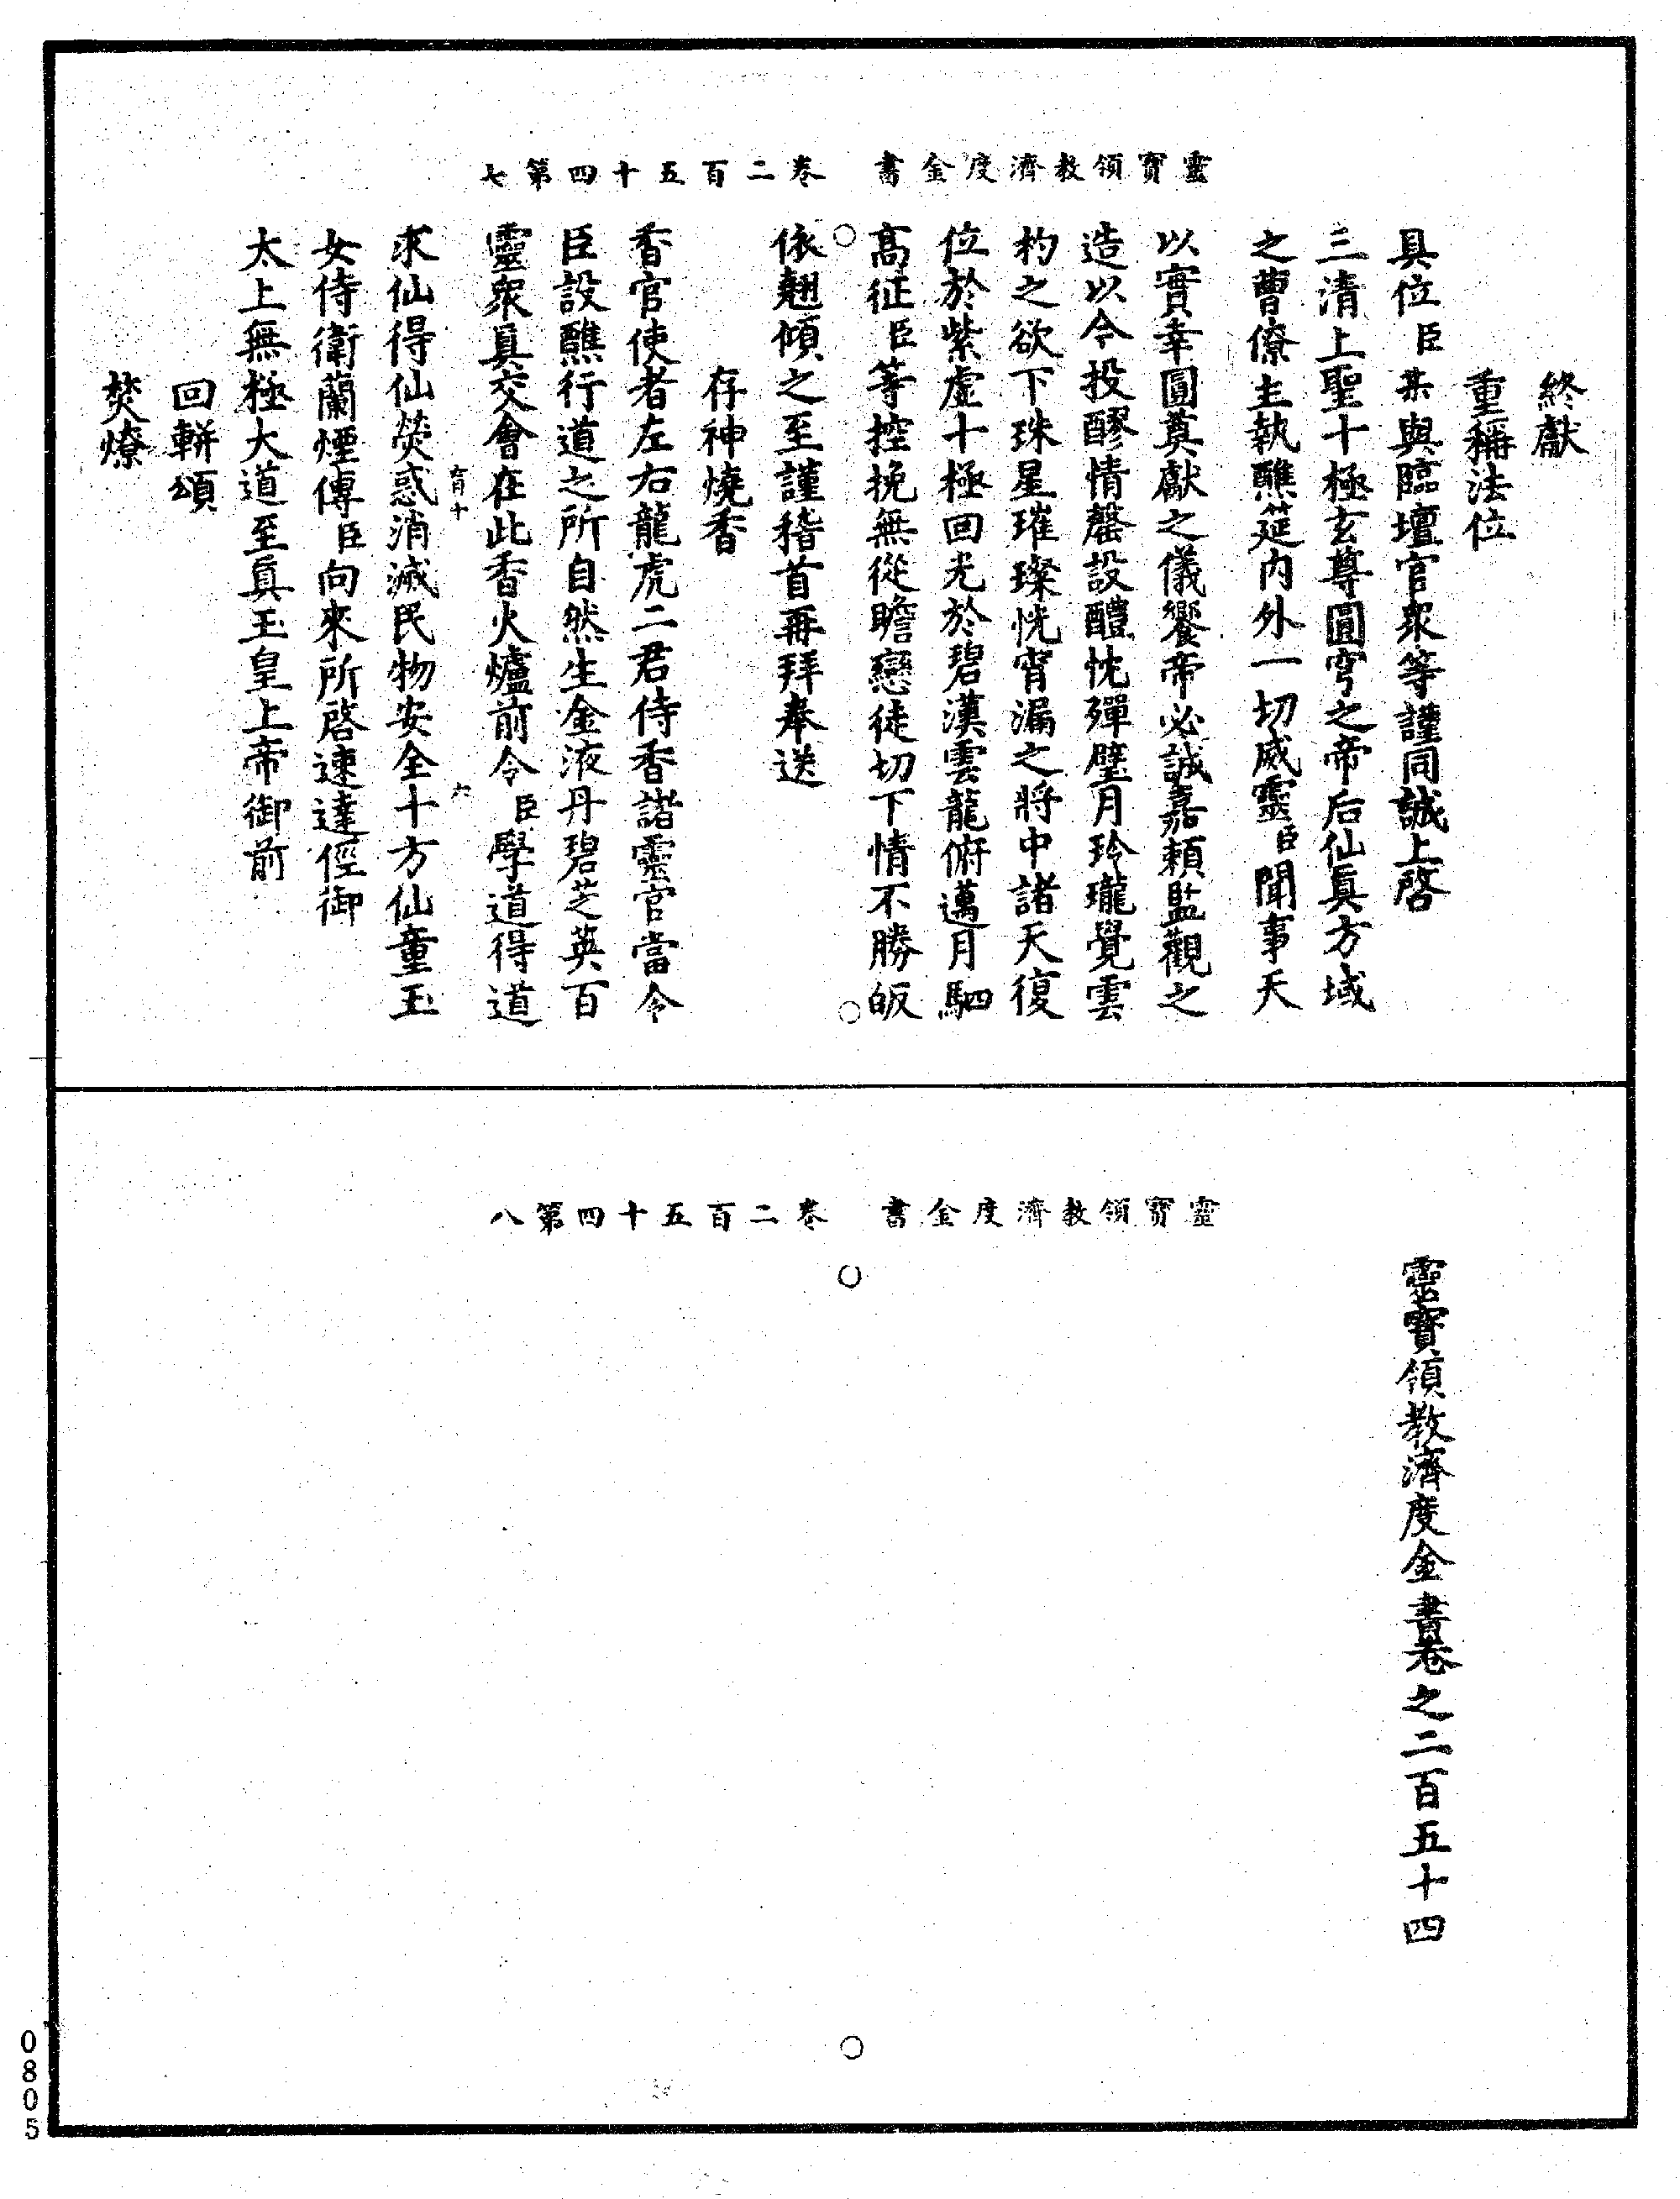 靈寶領教濟度金書　卷二百五十四第七
終獻
重稱法位
具位臣某與臨壇官衆等謹同誠上啓
三清上聖十極玄尊圓穹之帝后仙真方域
之曹僚主執醮筵内外一切威靈臣聞事天
以實幸圓奠獻之儀饗帝必誠嘉頼監觀之
造以今投醪情罄設醴忱殫璧月玲瓏覺雲
杓之欲下珠星璀璨恍宵漏之將中諸天復
位於紫虛十極回光於碧漢雲龍俯邁月駟
高征臣等控挽無從瞻戀徒切下情不勝皈
依翹傾之至謹稽首再拜奉送
存神燒香
香官使者左右龍虎二君侍香諸靈官當令
臣設醮行道之所自然生金液丹碧芝英百
靈衆真交會在此香火爐前令臣學道得道
求仙得仙熒惑消滅民物安全十方仙童玉
女侍衛蘭煙傳臣向來所啓速達徑御
太上無極大道至真玉皇上帝御前
回軿頌
焚燎
靈寶領教濟度金書　卷二百五十四第八
靈寶領教濟度金書卷之二百五十四
0805